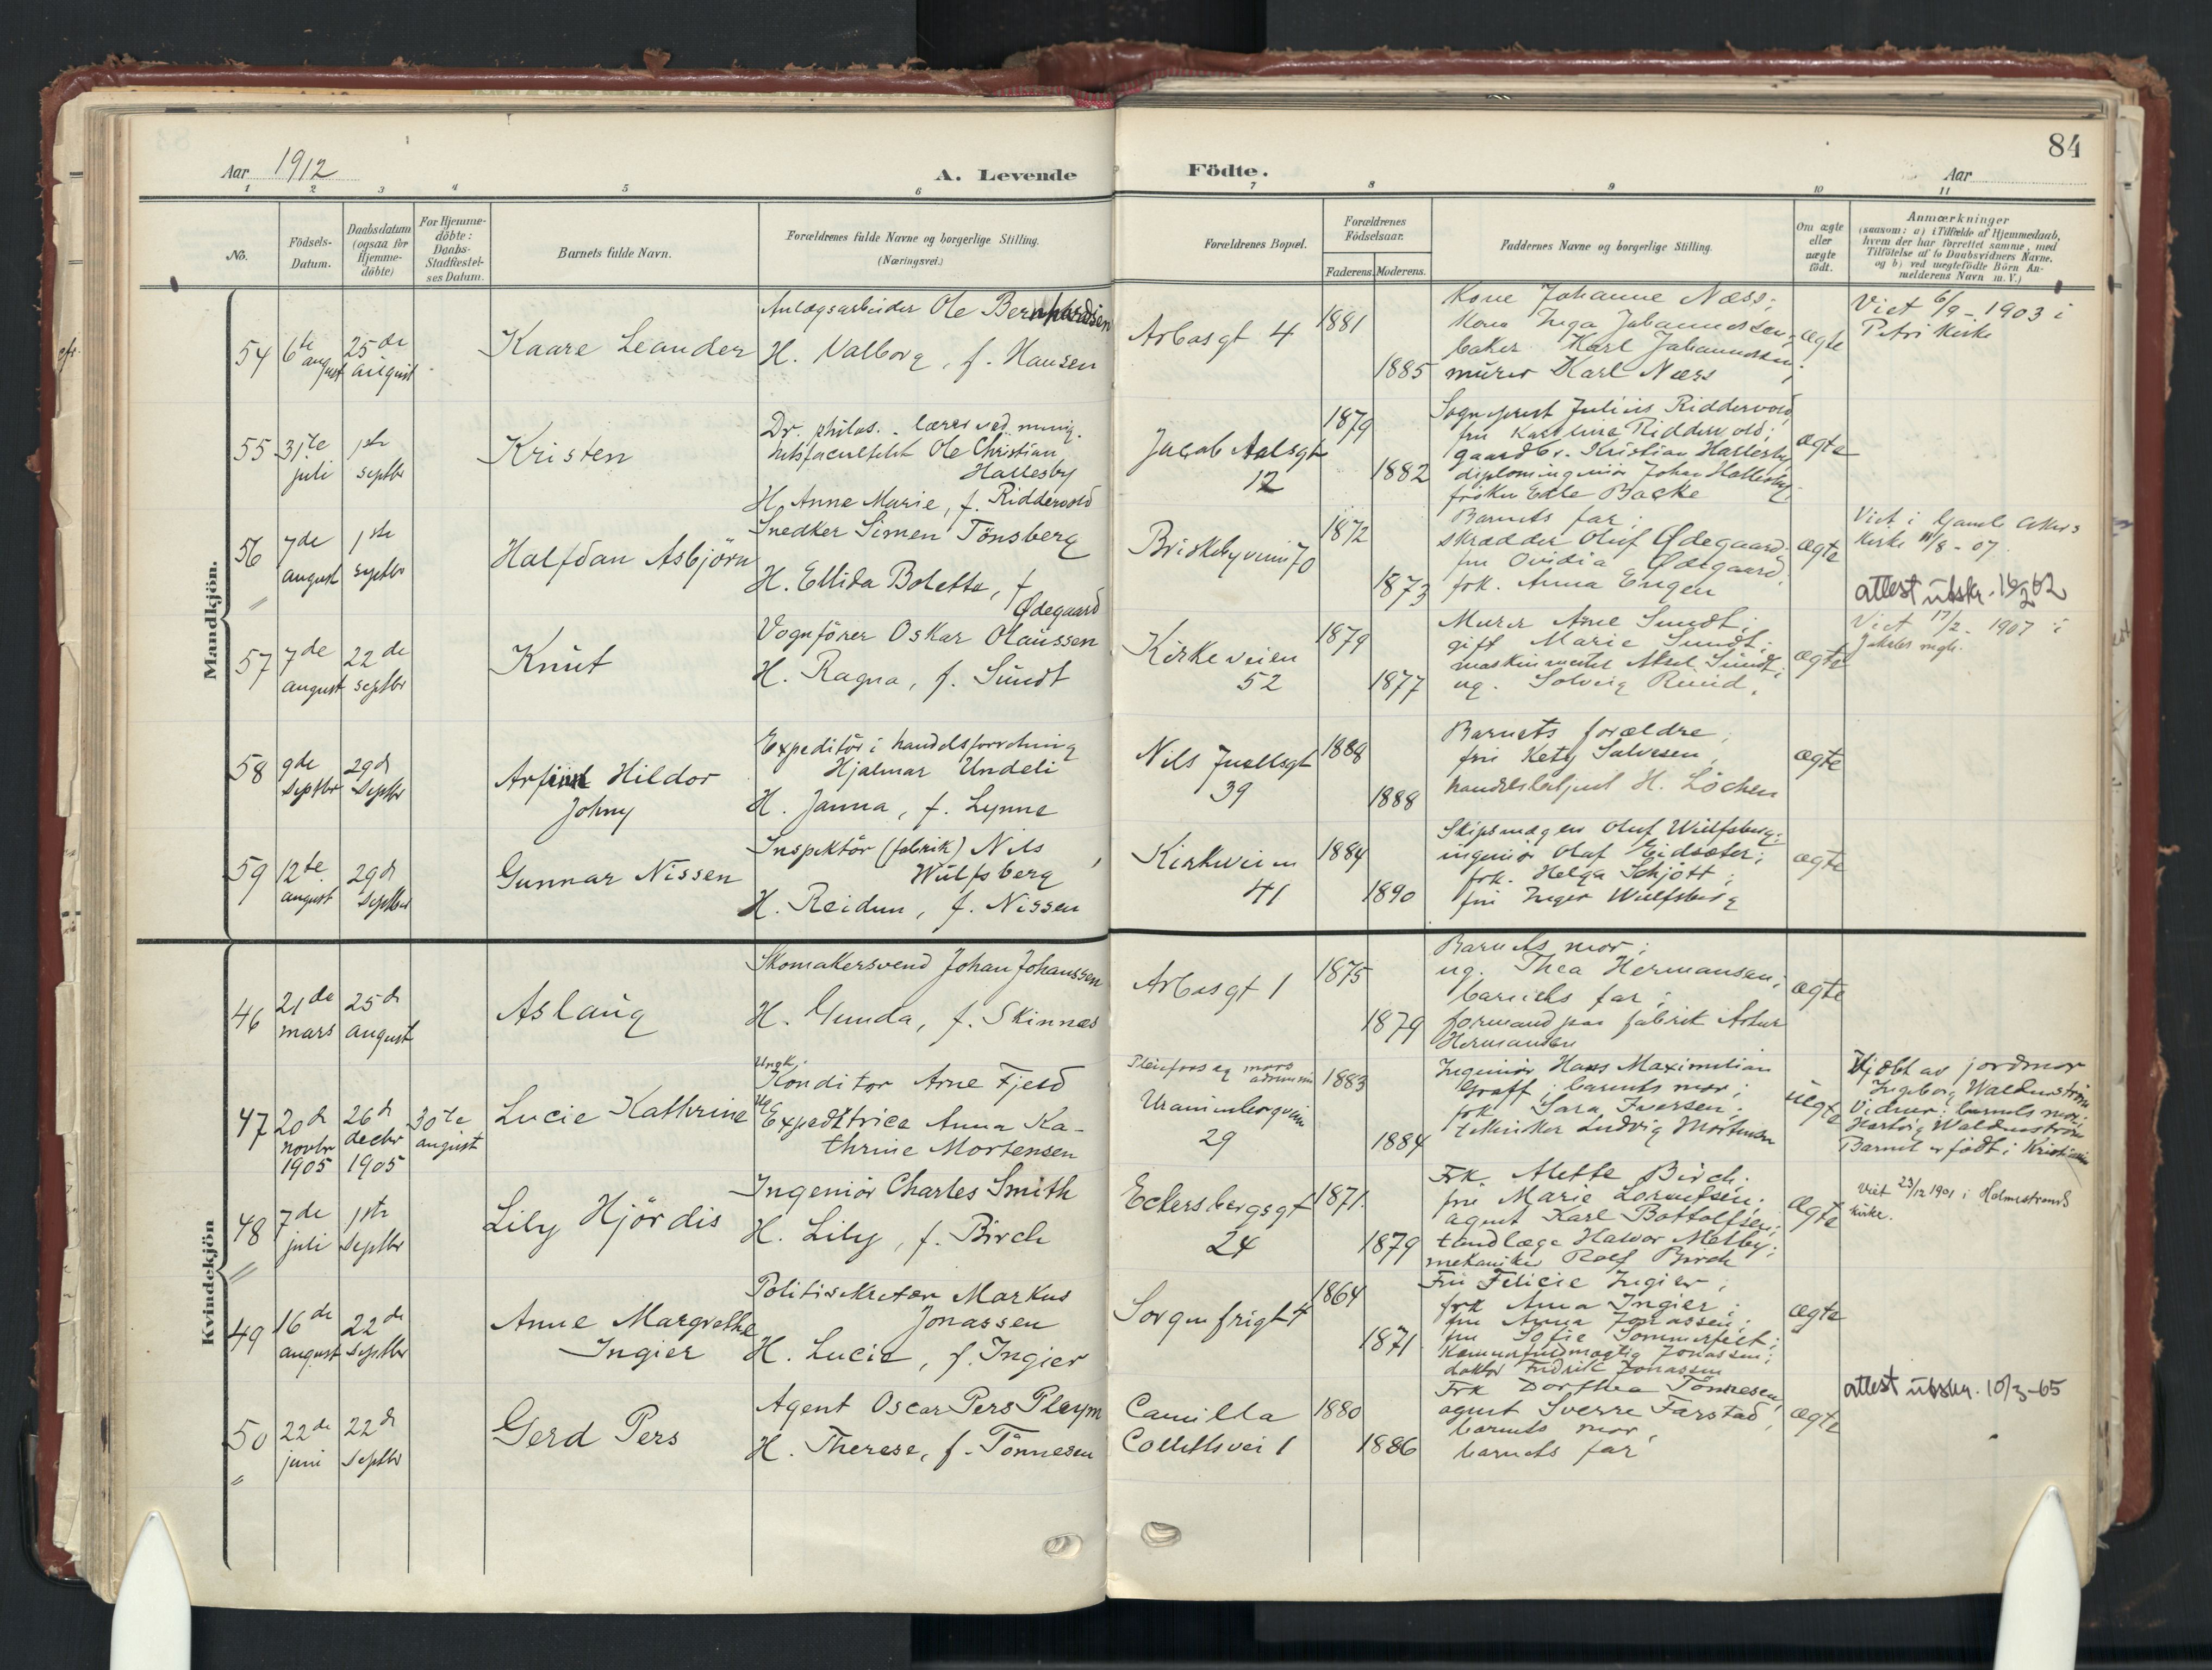 84
Aar 1912
A. Levende Födte.
Aar
1 2 3 4 5 6 7 8 9 10 11
No.
Födsels-
Datum.
Daabsdatum
(ogsaa for
Hjemme-
döbte)
For Hjemme-
döbte:
Daabs-
Stadfæstel-
ses Datum.
Barnets fulde Navn.
Forældrenes fulde Navne og borgerlige Stilling.
(Næringsvei.)
Forældrenes Bopæl.
Forældrenes
Födselsaar.
Faderens.
Moderens.
Faddernes Navne og borgerlige Stilling.
Om ægte
eller
uægte
födt.
Anmærkninger
(saasom: a) i Tilfælde af Hjemmedaab,
hvem der har forrettet samme, med
Tilföielse af to Daabsvidners Navne,
og b) ved uægtefödte Börn An-
melderens Navn m. V.)
Mandkjön.
54
6te
august
25de
august
Kaare Leander
Anlægsarbeider Ole Bernhardsen
H. Valborg, f. Hansen
Arbosgt 4
1881
1885
Kone Johanne Næss;
Kone Inga Johannessen;
baker Karl Johannessen;
murer Karl Næss
ægte
Viet 6/9 - 1903 i
Petri Kirke
55
31te
juli
1ste
septbr
Kristen
Dr. philos. lærer ved menig-
hetsfacultetet Ole Christian
Hallesby
H. Anne Marie, f. Riddervold
Jacob Aalsgt
12
1879
1882
Sogneprest Julius Riddervold
fru Karoline Riddervold;
gaardbr. Kristian Hallesby
diplomingeniör Johan Hallesby;
fröken Edle Backe
ægte
56
7de
august
1ste
septbr
Halfdan Asbjörn
Snedker Simen Tönsberg
H. Ellida Bolette, f
Ødegaard
Briskebyveien 70
1872
1873
Barnets far;
skrædder Oluf Ødegaard;
fru Ovidia Ødegaard;
frk. Anna Engen
ægte
Viet i Gamle Akers
Kirke 11/8 - 07.
attest utskr. 16/2 62
57
7de
august
22de
septbr
Knut
Vognförer Oskar Olaussen
H. Ragna, f. Sundt
Kirkeveien
52
1879
1877
Murer Arne Sundt;
gift Marie Sundt;
maskinmester Aksel Sundt;
ug. Solveig Ruud.
ægte
Viet 17/2 - 1907 i
Jakobs mgh.
58
9de
Septbr
29d
Septbr
Arfinn Hildor
Johny
Expeditör i handelsforretning
Hjalmar Undeli
H. Janna, f. Lynne
Nils Juellsgt
39
1888
1888
Barnets forældre;
fru Kety Salvesen
handelsbetjent H. Löchen
ægte
59
12te
august
29d
Septbr
Gunnar Nissen
Inspektör (fabrik) Nils
Wulfsberg
H. Reidun, f. Nissen
Kirkeveien
41
1884
1890
Skipsmægler Oluf Wulfsberg;
ingeniör Olaf Eidsæter;
frk. Helga Schjött;
fru Inger Wulfsberg
ægte
Kvindekjön
46
21de
mars
25d
august
Aslaug
Skomakersvend Johan Johanssen
H. Gunda, f. Skinnes
Arbosgt 1
1875
1879
Barnets mor;
ug. Thea Hermansen;
barnets far;
formand paa fabrik Artur
Hermansen
ægte
47
20d
novbr
1905
26d
decbr
1905
30te
august
Lucie Kathrine
Ungk.
Konditor Arne Fjeld
Ug
Expeditrice Anna Ka-
thrine Mortensen
Pleiefors og mors
Uranienborgveien
29
1883
1884
Ingeniör Hans Maximilian
Graff; barnets mor;
frk. Sara Iversen;
tekniker Ludvig Mortensen
uegte
Hjdbt av jordmor
Ingeborg Waldenström
Vidner: barnets mor,
Hartvig Waldenström
Barnet er födt i Kristiania
48
7de
juli
1ste
Septbr
Lily Hjördis
Ingeniör Charles Smith
H. Lily, f. Birch
Eckersbergsgt
24
1871.
1879
Frk. Mette Birch;
fru Marie Lorentsen;
agent Karl Bottolfsen;
tandlæge Halvor Melby;
mekaniker Rolf Birch
ægte
Viet 23/12 1901 i Holmestrands
kirke.
49
16de
august
22de
Septbr
Anne Margrethe
Ingier
Politisekretær Markus
Jonassen
H. Lucie, f. Ingier
Sorgenfrigt 4
1864
1871
Fru Felicie Ingier;
frk Anna Ingier;
fru Anna Jonassen;
fru Sofie Sommerfelt;
Kontorfuldmægtig Jonassen;
doktor Fredrik Jonassen
ægte
50
22de
juni
22d
Septbr
Gerd Pers
Agent Oscar Pers Pleym
H. Therese, f. Tönnesen
Camilla
Collettsvei 1
1880
1886
Frk Dorthea Tönnesen,
agent Sverre Farstad,
barnets mor,
barnets far
ægte
attest utskr. 10/3-65